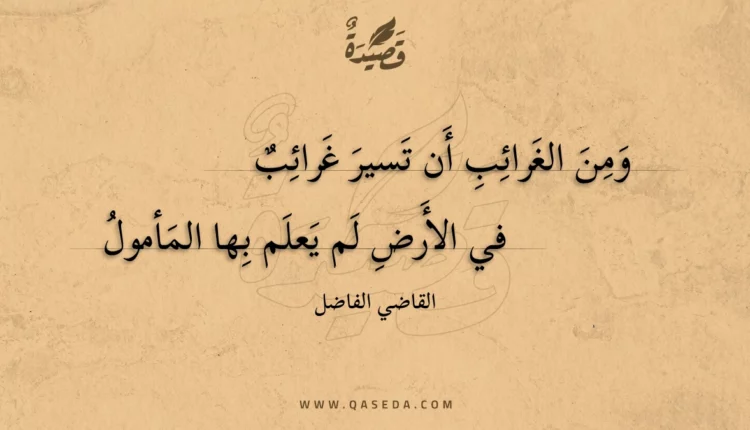 قَصِيدَةٌ
وَمِنَ الغَرائِبِ أَن تَسيرَ غَرائِبٌ
في الأَرضِ لَم يَعلَم بِها المَأمولُ
القاضي الفاضل
WWW.QASEDA.COM